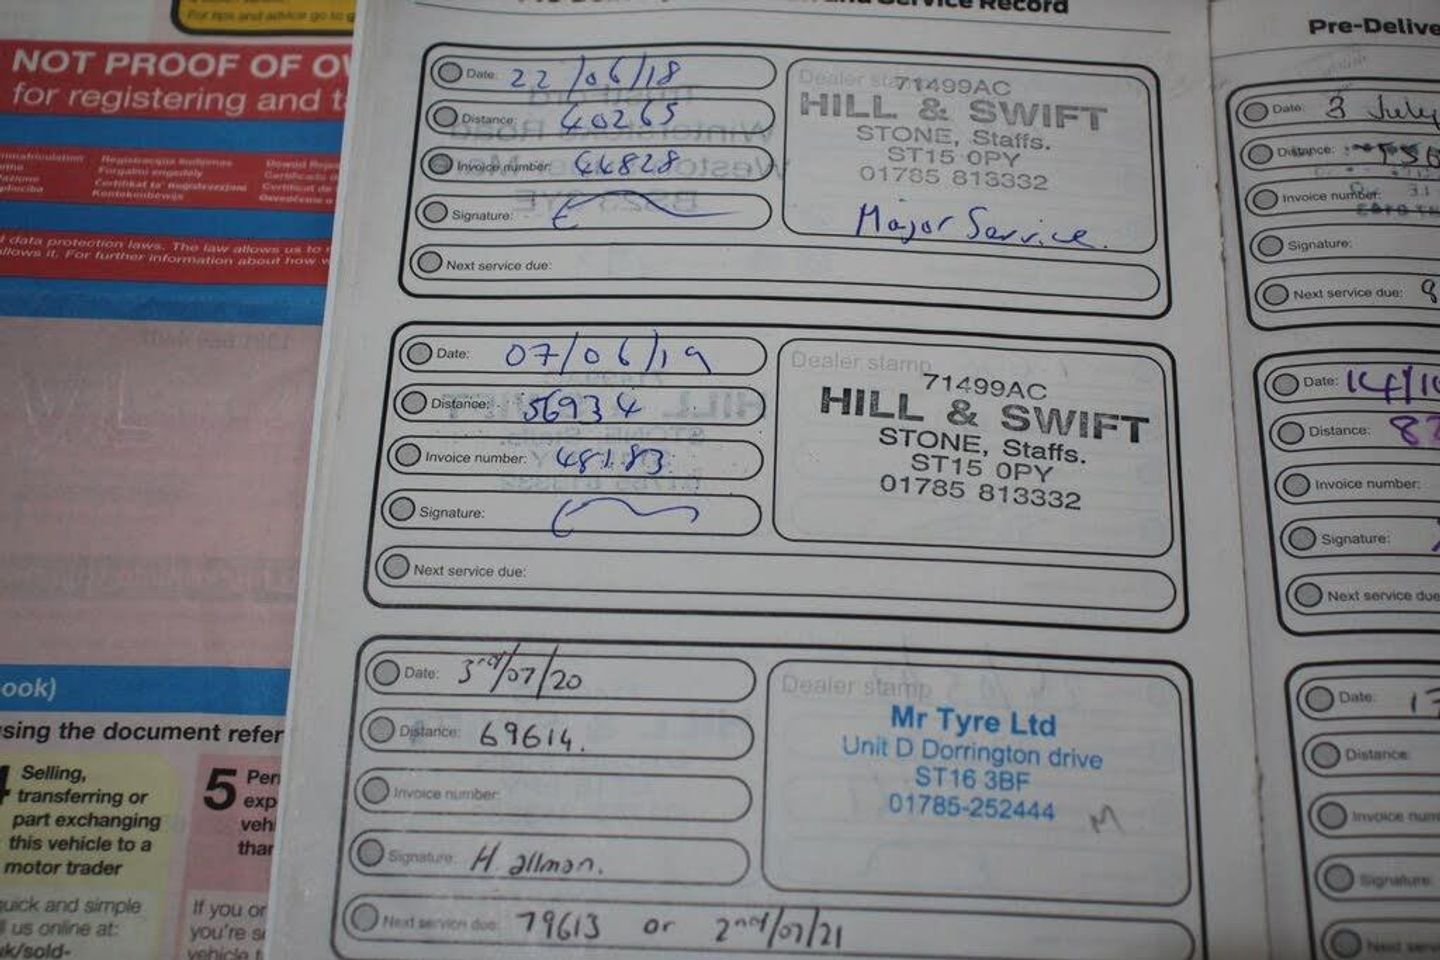 For tips and advice go to g
NOT PROOF OF O
for registering and t
data protection laws. The law allows us to
allows it. For further information about how
ook)
sing the document refer
4 Selling,
transferring or
part exchanging
this vehicle to a
motor trader
quick and simple
us online at:
uk/sold-
5 Per
exp
veh
that
If you or
you're s
vehicle t
and Service Record
Date: 22/06/18
Distance: 40265
Invoice number: 44828
Signature:
Next service due:
Dealer stamp
71499AC
HILL & SWIFT
STONE, Staffs.
ST15 0PY
01785 813332
Major Service.
Date: 07/06/19
Distance: 56934
Invoice number: 48183
Signature:
Next service due:
Dealer stamp
71499AC
HILL & SWIFT
STONE, Staffs.
ST15 0PY
01785 813332
Date: 3rd/07/20
Distance: 69614.
Invoice number:
Signature: H. allman.
Next service due: 79613 or 2nd/07/21
Dealer stamp
Mr Tyre Ltd
Unit D Dorrington drive
ST16 3BF
01785-252444
Pre-Delive
Date: 3 July
Distance:
Invoice number:
Signature:
Next service due: 8
Date: 14/10
Distance: 87
Invoice number:
Signature:
Next service due
Date: 17
Distance:
Invoice num
Signature:
Next servic